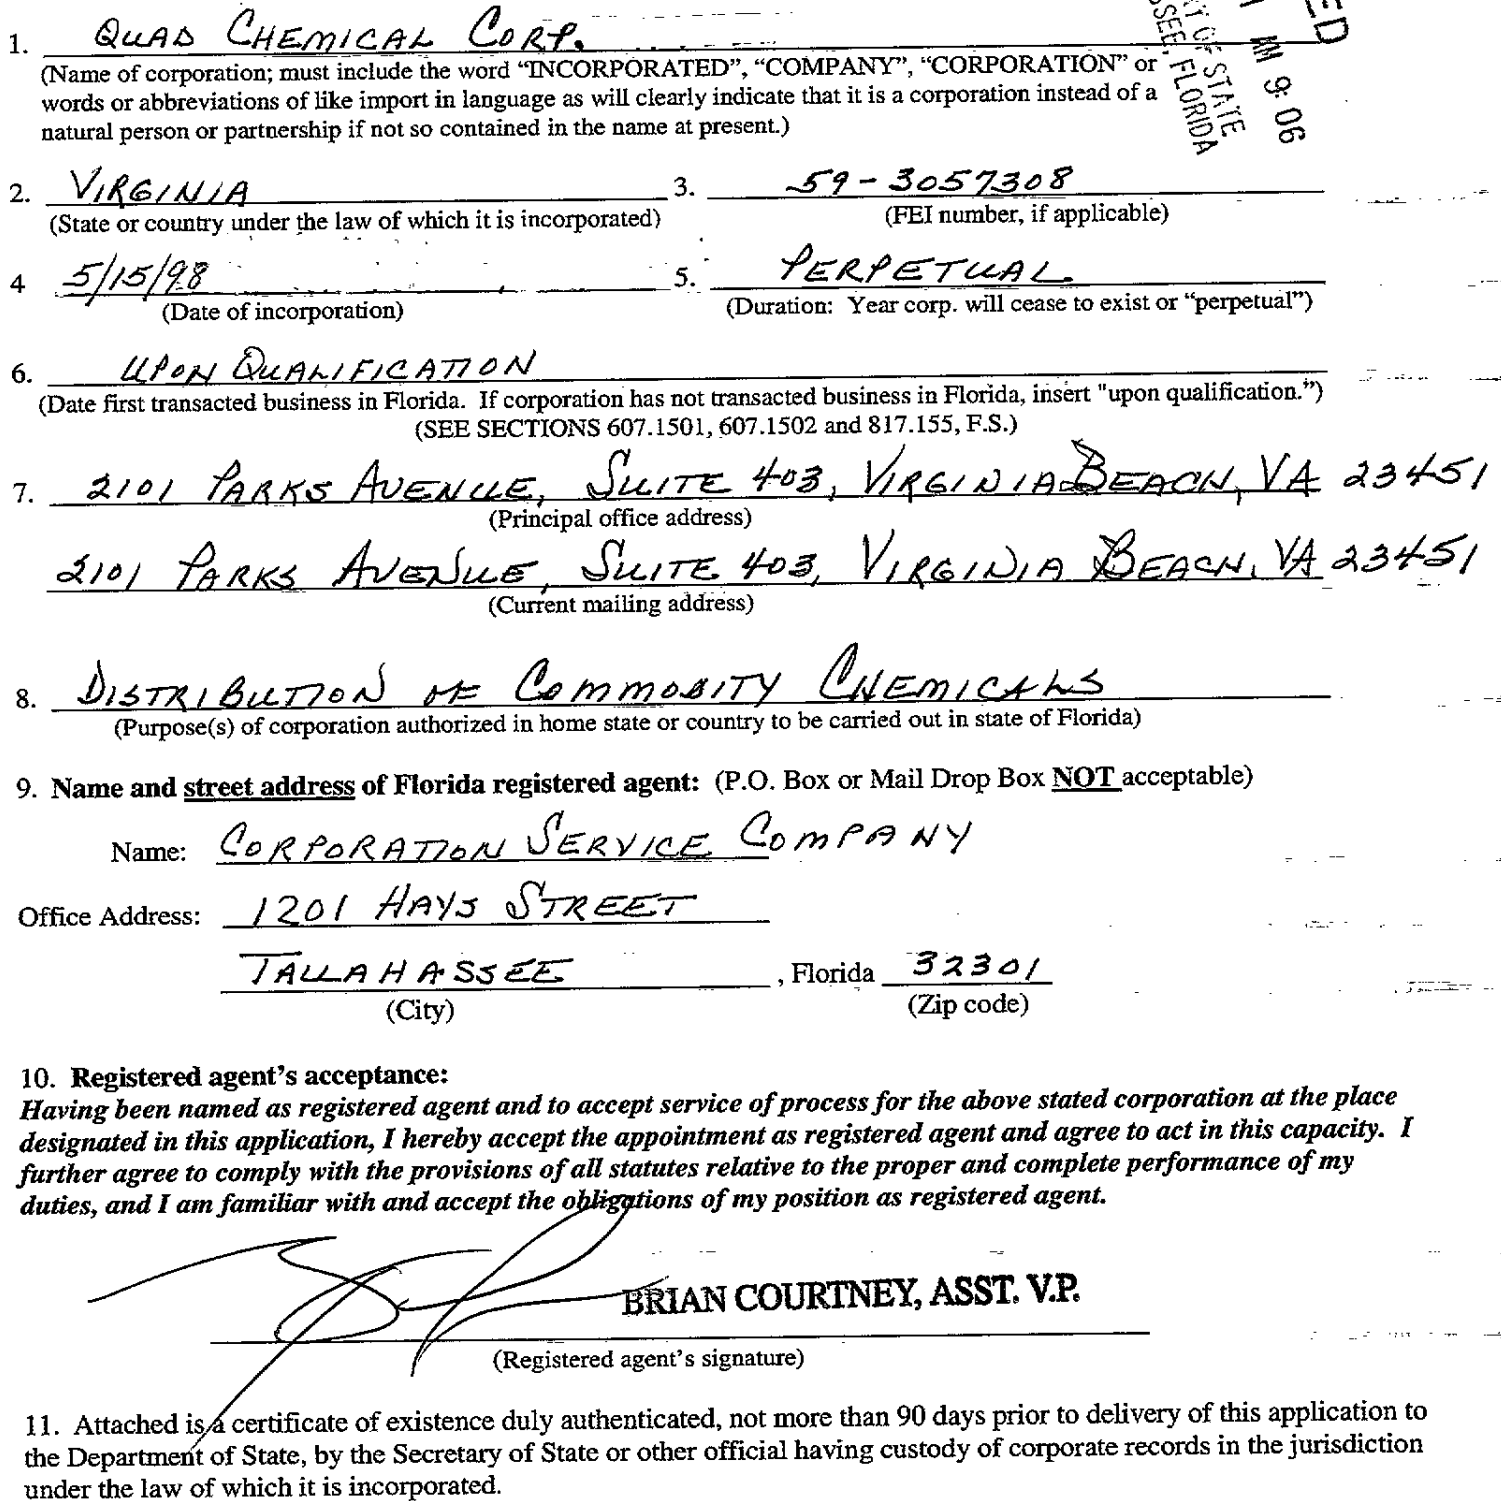 1. QUAD CHEMICAL CORP.
(Name of corporation; must include the word “INCORPORATED”, “COMPANY”, “CORPORATION” or
words or abbreviations of like import in language as will clearly indicate that it is a corporation instead of a
natural person or partnership if not so contained in the name at present.)
OF STATE
FLORIDA
AM 9:06
2. VIRGINIA 3. 59-3057308
(State or country under the law of which it is incorporated) (FEI number, if applicable)
4 5/15/98 5. PERPETUAL
(Date of incorporation) (Duration: Year corp. will cease to exist or “perpetual”)
6. UPON QUALIFICATION
(Date first transacted business in Florida. If corporation has not transacted business in Florida, insert "upon qualification.”)
(SEE SECTIONS 607.1501, 607.1502 and 817.155, F.S.)
7. 2101 PARKS AVENUE, SUITE 403, VIRGINIA BEACH, VA 23451
(Principal office address)
2101 PARKS AVENUE, SUITE 403, VIRGINIA BEACH, VA 23451
(Current mailing address)
8. DISTRIBUTION OF COMMODITY CHEMICALS
(Purpose(s) of corporation authorized in home state or country to be carried out in state of Florida)
9. Name and street address of Florida registered agent: (P.O. Box or Mail Drop Box NOT acceptable)
Name: CORPORATION SERVICE COMPANY
Office Address: 1201 HAYS STREET
TALLAHASSEE, Florida 32301
(City) (Zip code)
10. Registered agent’s acceptance:
Having been named as registered agent and to accept service of process for the above stated corporation at the place
designated in this application, I hereby accept the appointment as registered agent and agree to act in this capacity. I
further agree to comply with the provisions of all statutes relative to the proper and complete performance of my
duties, and I am familiar with and accept the obligations of my position as registered agent.
BRIAN COURTNEY, ASST. V.P.
(Registered agent’s signature)
11. Attached is a certificate of existence duly authenticated, not more than 90 days prior to delivery of this application to
the Department of State, by the Secretary of State or other official having custody of corporate records in the jurisdiction
under the law of which it is incorporated.